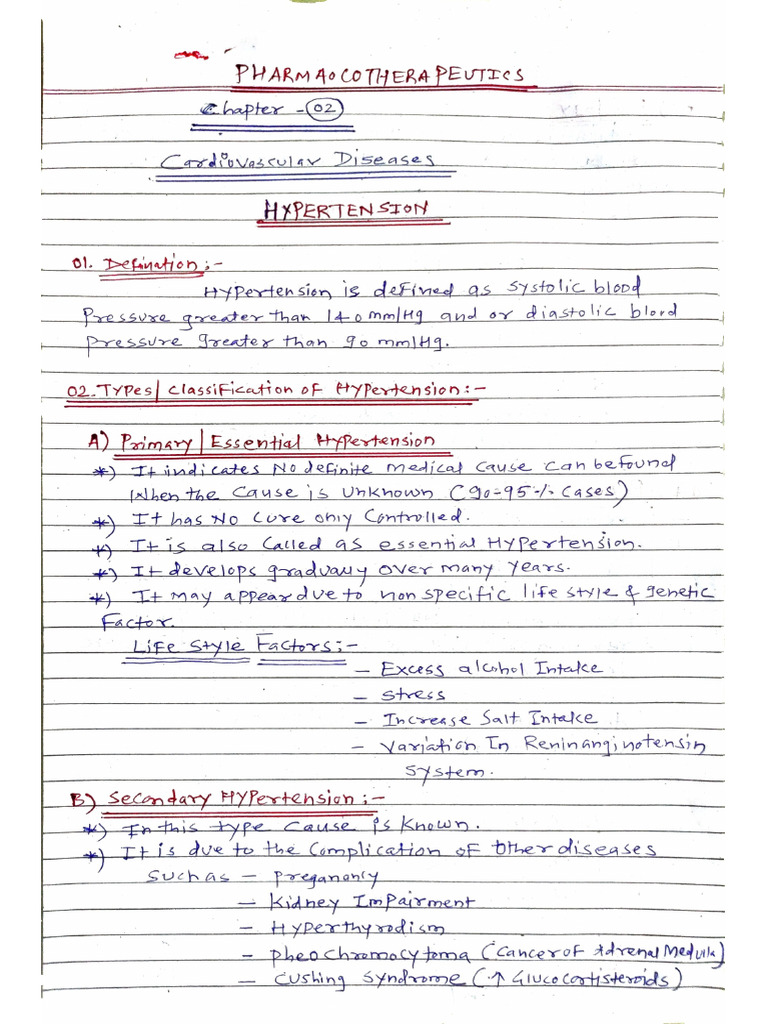 PHARMAOCOTHERAPEUTICS
Chapter - 02
Cardiovascular Diseases
HYPERTENSION
01. Defination :-
Hypertension is defined as systolic blood
Pressure greater than 140 mm/Hg and or diastolic blood
pressure greater than 90 mm/Hg.
02. Types/ Classification of Hypertension :-
A) Primary / Essential Hypertension
*) It indicates No definite medical cause can be found
When the cause is unknown (90-95 % cases)
*) It has No cure only controlled.
*) It is also called as essential Hypertension.
*) It develops gradually over many years.
*) It may appear due to non specific life style & genetic
Factor.
Life Style Factors :-
- Excess alcohol Intake
- Stress
- Increase Salt Intake
- Variation In Reninanginotensin
System.
B) Secondary Hypertension :-
*) In this type cause is known.
*) It is due to the complication of other diseases
Such as - Preganancy
- Kidney Impairment
- Hyperthyrodism
- Pheochromocytoma (Cancer of Adrenal Medulla)
- Cushing Syndrome (↑ Glucocortisteroids)